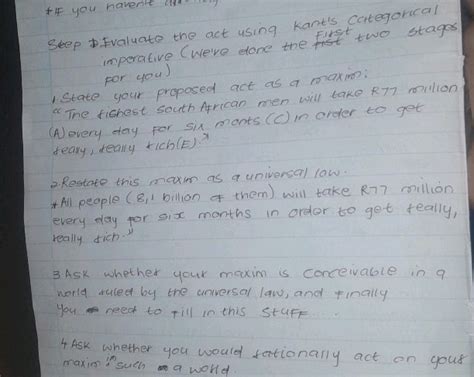 *If you haven't
Step 1. Evaluate the act using Kant's categorical
imperative (we've done the first two stages
for you)
1. State your proposed act as a maxim:
"The richest South African men will take R77 million
(A) every day for six monts (C) in order to get
really, really rich (E)."
2. Restate this maxim as a universal law.
*All people (8,1 billion of them) will take R77 million
every day for six months in order to get really,
really rich."
3 Ask whether your maxim is conceivable in a
world ruled by the universal law, and finally
you need to fill in this stuff...
4 Ask whether you would rationally act on your
maxim in such a world.